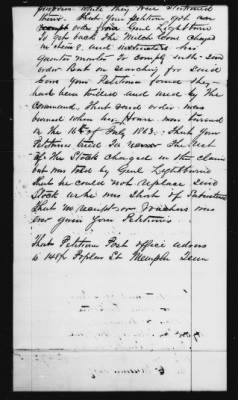 pasture while they were slaughtered
them. That your petitioner got an
order from Genl Lightburn
to get back the Milch Cows charged
in claim & and instructed his
quarter master to comply with said
order But on searching for said
Cows your Petitioner found they
have been killed and used by the
command. That said order was
burned when her House was burned
on the 16th of July 1863. That your
Petitioner tried to recover the Rest
of the Stock charged in this claim
but was told by Genl Lightburn
that he could not replace said
Stock as he was Short of Subsistence
that no receipts or Vouchers was
ever given your Petitioner

That Petitioner Post office address
is 145½ Poplar St Memphis Tenn